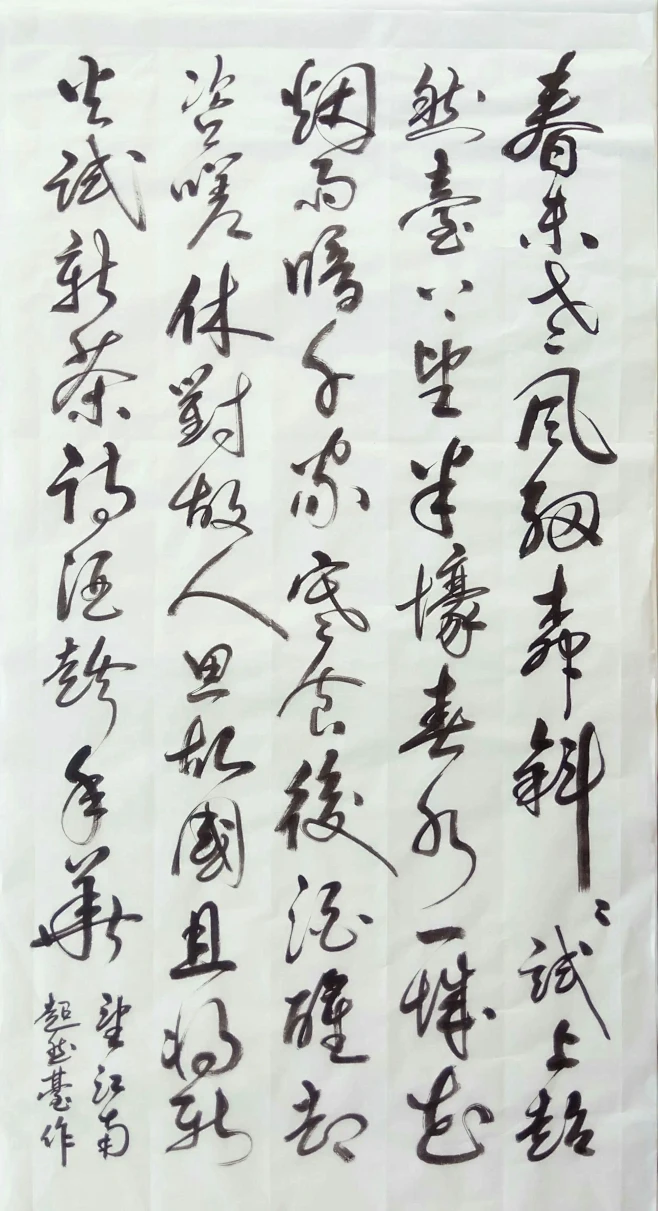 春未老風細柳斜〻試上超
然臺上望半壕春水一城花
烟雨暗千家寒食後酒醒却
咨嗟休對故人思故國且將新
火試新茶詩酒趁年華
望江南
超然臺作